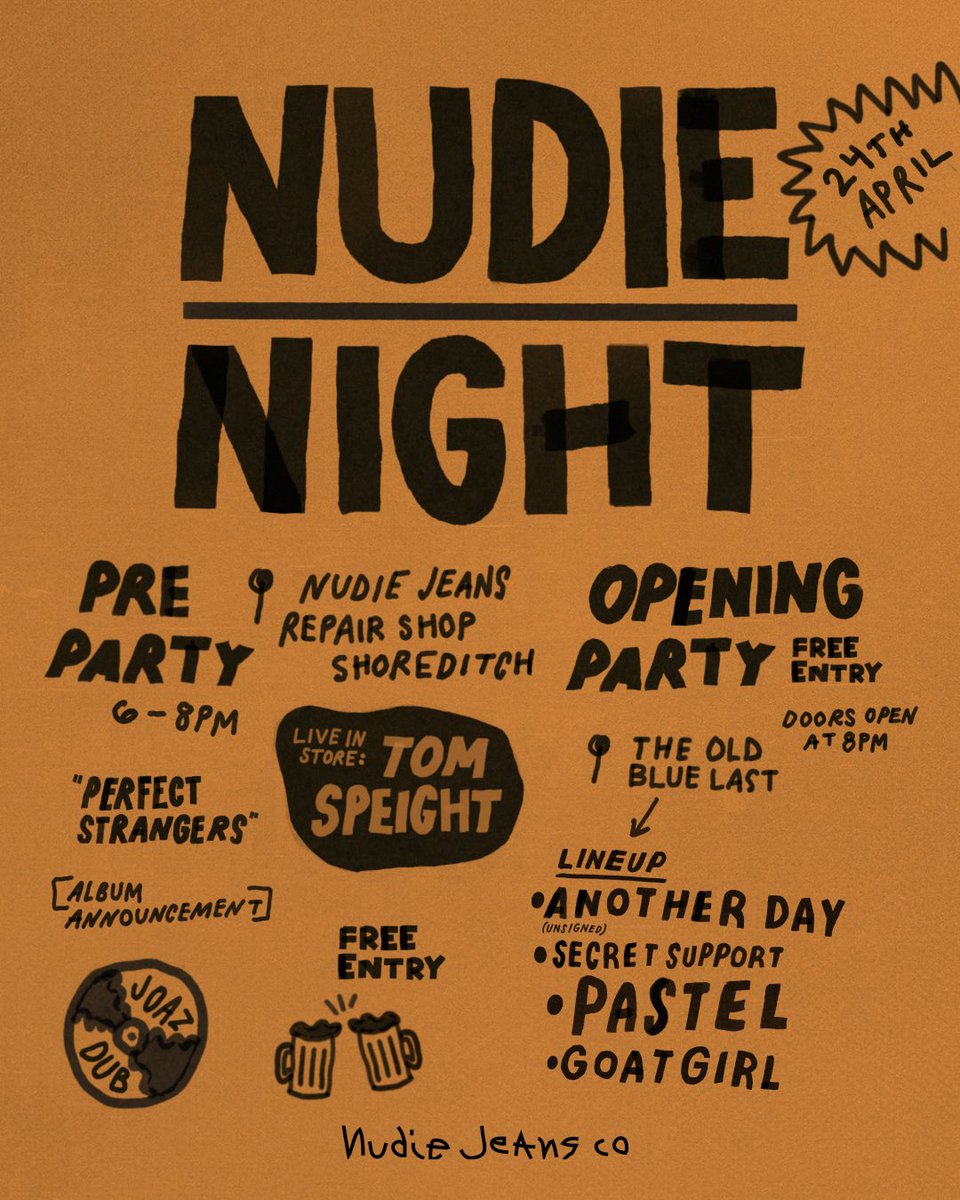 NUDIE
NIGHT
24TH
APRIL
PRE
PARTY
6-8PM
NUDIE JEANS
REPAIR SHOP
SHOREDITCH
LIVE IN
STORE:
TOM
SPEIGHT
"PERFECT
STRANGERS"
[ALBUM
ANNOUNCEMENT]
JOAZ
DUB
FREE
ENTRY
OPENING
PARTY
FREE
ENTRY
DOORS OPEN
AT 8PM
THE OLD
BLUE LAST
LINEUP
•ANOTHER DAY
(UNSIGNED)
•SECRET SUPPORT
•PASTEL
•GOAT GIRL
Nudie Jeans co